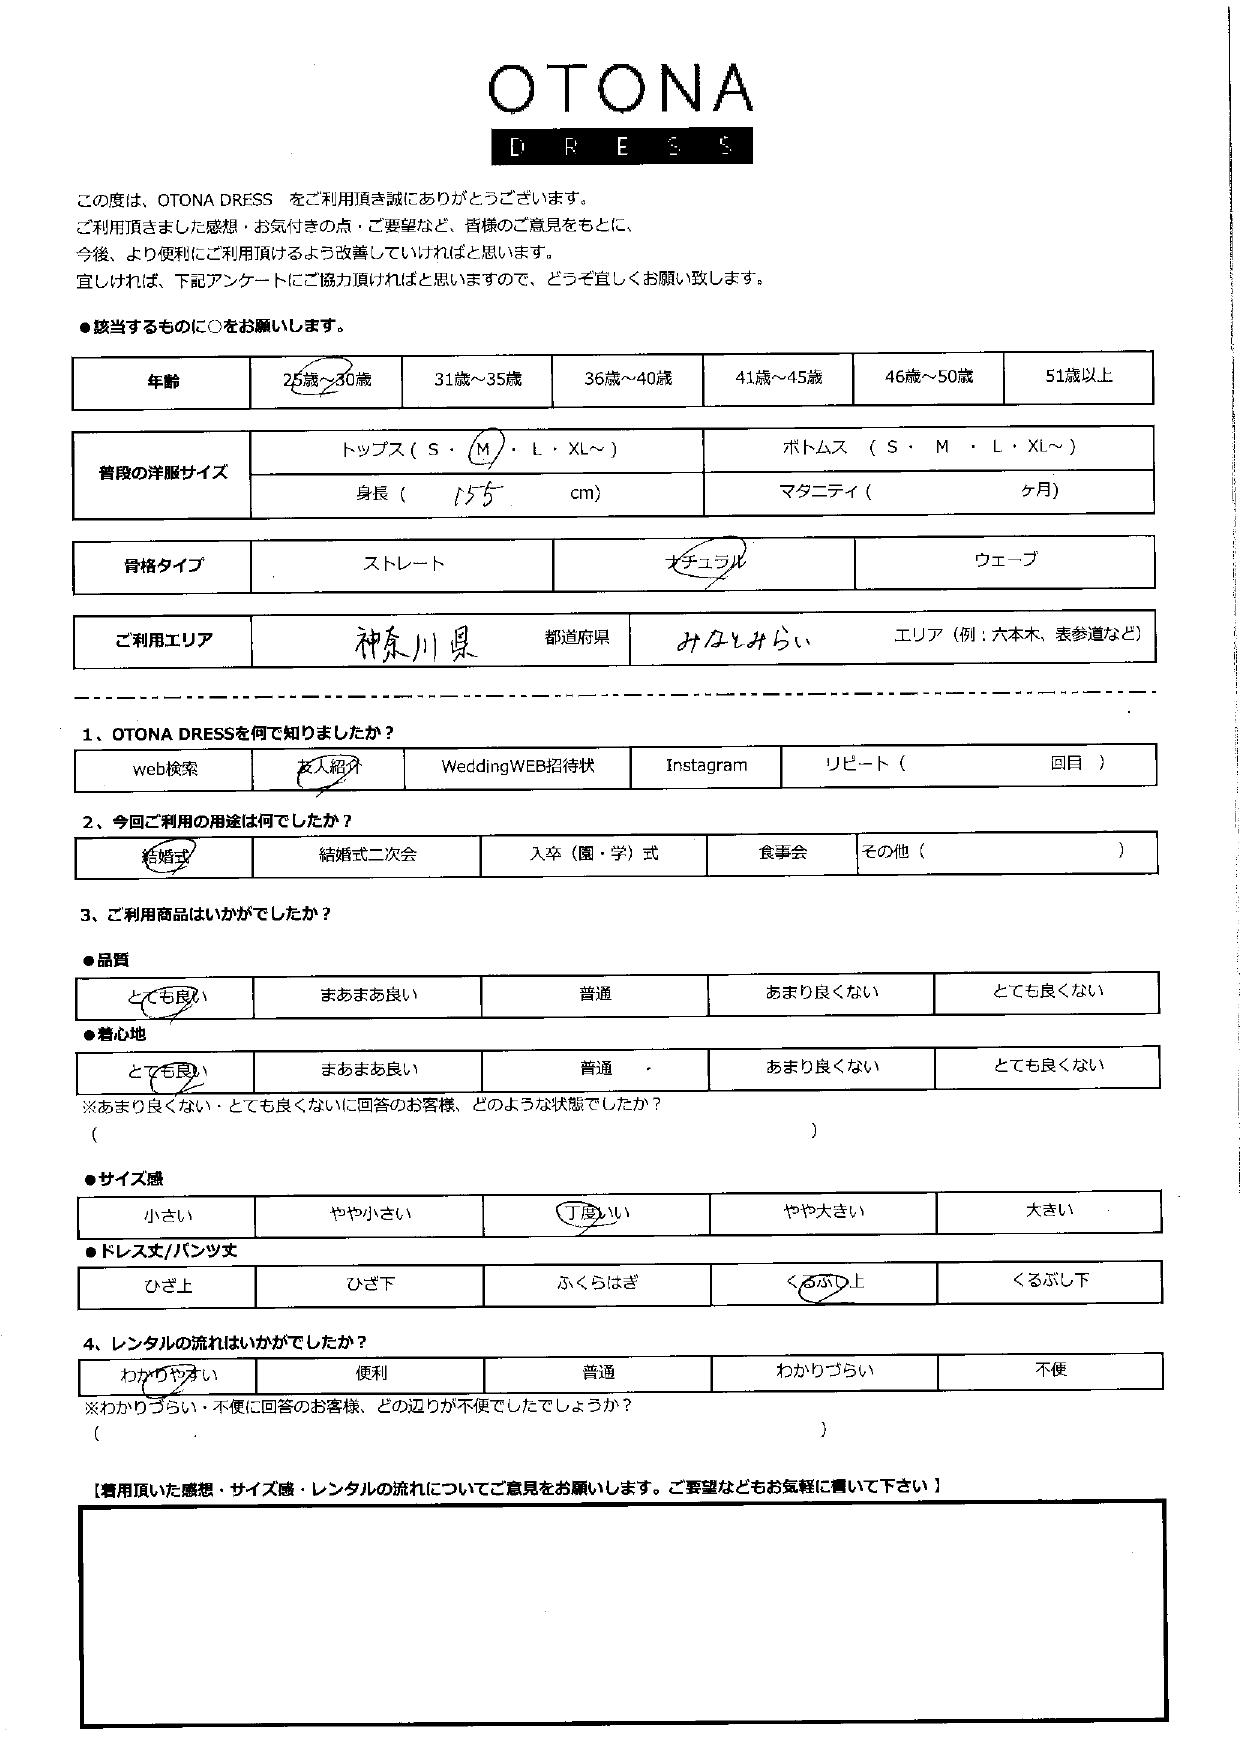 OTONA
DRESS
この度は、OTONA DRESS をご利用頂き誠にありがとうございます。
ご利用頂きました感想・お気付きの点・ご要望など、皆様のご意見をもとに、
今後、より便利にご利用頂けるよう改善していければと思います。
宜しければ、下記アンケートにご協力頂ければと思いますので、どうぞ宜しくお願い致します。
●該当するものに○をお願いします。
年齢 25歳～30歳 31歳～35歳 36歳～40歳 41歳～45歳 46歳～50歳 51歳以上
普段の洋服サイズ
トップス ( S ・ M ・ L ・ XL～ ) ボトムス ( S ・ M ・ L ・ XL～ )
身長 ( 155 cm) マタニティ ( ケ月)
骨格タイプ ストレート ナチュラル ウェーブ
ご利用エリア 神奈川県 都道府県 みなとみらい エリア（例：六本木、表参道など）
1、OTONA DRESSを何で知りましたか？
web検索 友人紹介 WeddingWEB招待状 Instagram リピート（ 回目 ）
2、今回ご利用の用途は何でしたか？
結婚式 結婚式二次会 入卒（園・学）式 食事会 その他（ ）
3、ご利用商品はいかがでしたか？
●品質
とても良い まあまあ良い 普通 あまり良くない とても良くない
●着心地
とても良い まあまあ良い 普通 あまり良くない とても良くない
※あまり良くない・とても良くないに回答のお客様、どのような状態でしたか？
( )
●サイズ感
小さい やや小さい 丁度いい やや大きい 大きい
●ドレス丈/パンツ丈
ひざ上 ひざ下 ふくらはぎ くるぶし上 くるぶし下
4、レンタルの流れはいかがでしたか？
わかりやすい 便利 普通 わかりづらい 不便
※わかりづらい・不便に回答のお客様、どの辺りが不便でしたでしょうか？
( )
【着用頂いた感想・サイズ感・レンタルの流れについてご意見をお願いします。ご要望などもお気軽に書いて下さい 】